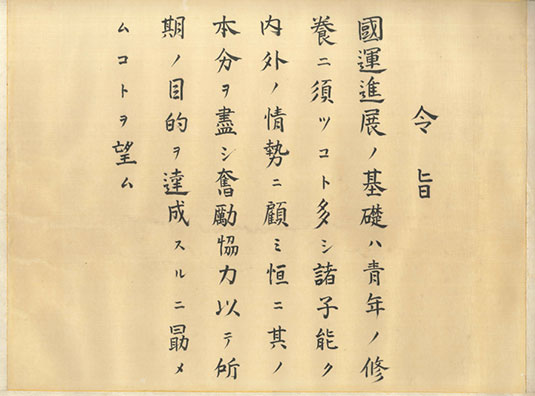 令旨
國運進展ノ基礎ハ青年ノ修
養ニ須ツコト多シ諸子能ク
内外ノ情勢ニ顧ミ恒ニ其ノ
本分ヲ盡シ奮勵協力以テ所
期ノ目的ヲ達成スルニ勗メ
ムコトヲ望ム